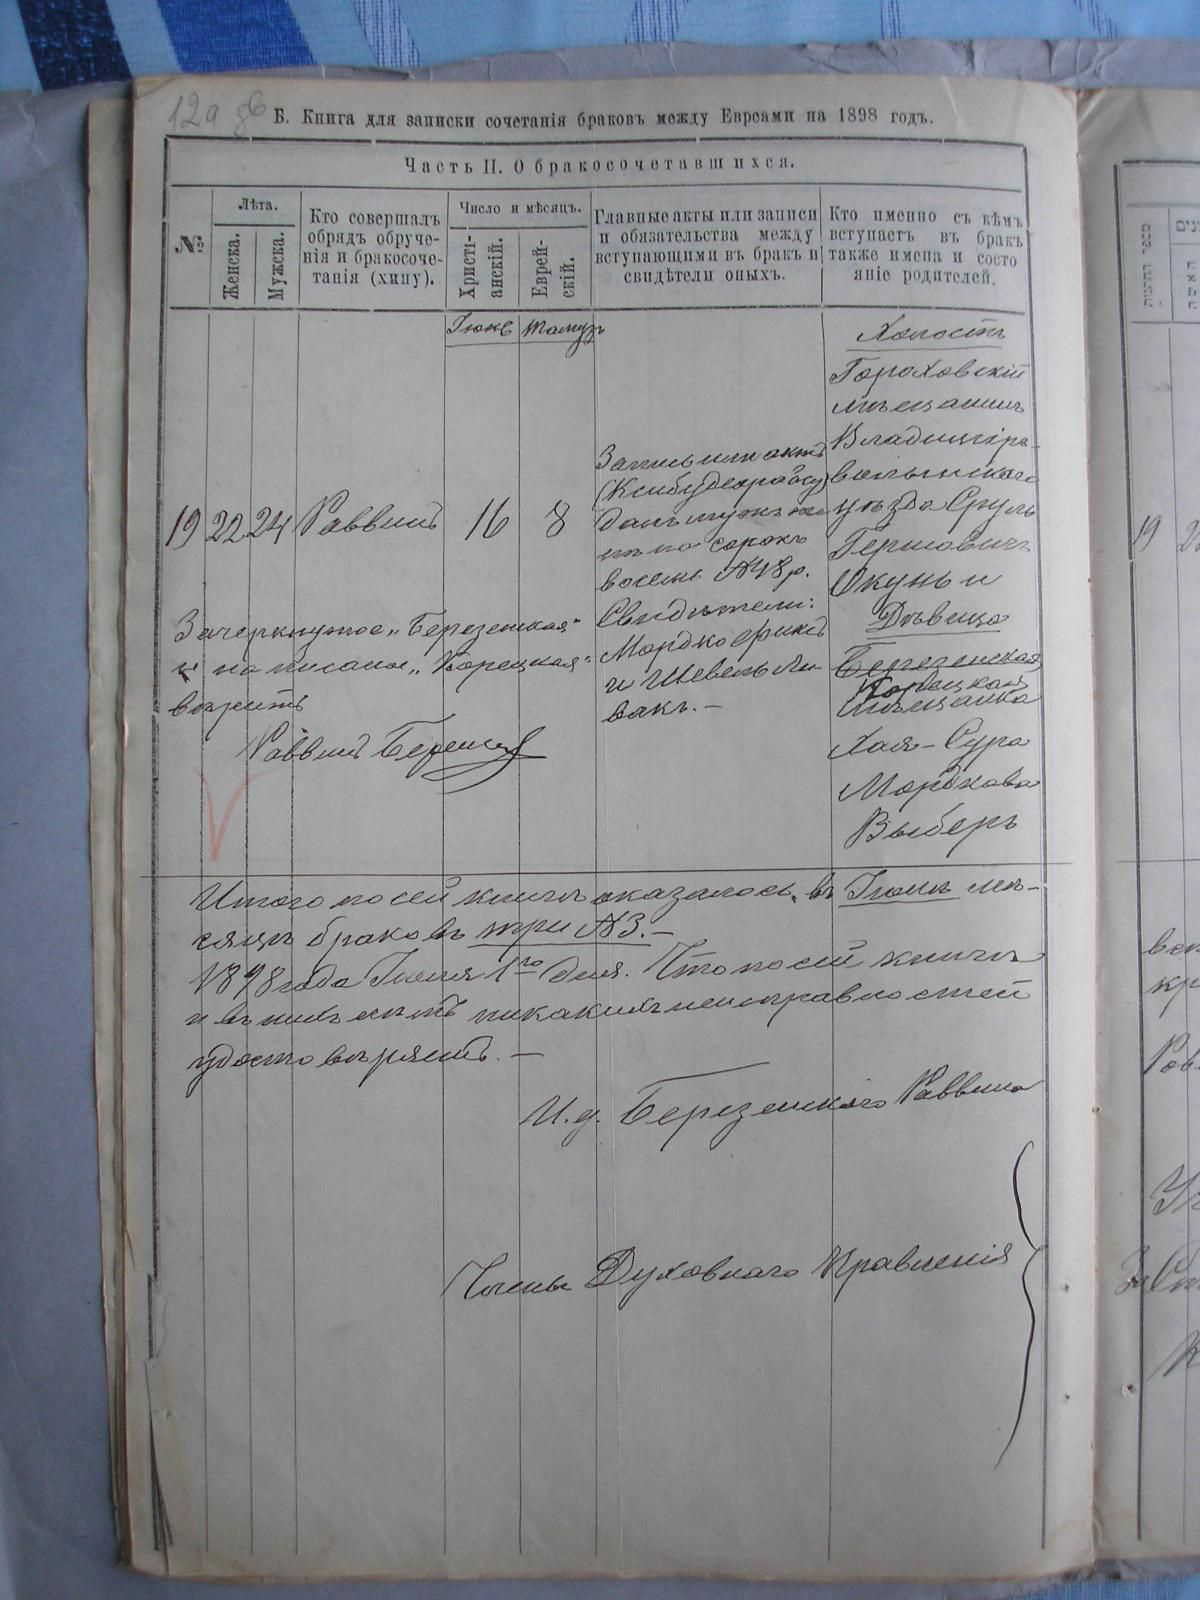 129 зб
Б. Книга для записки сочетанія браковъ между Евреами на 1898 годъ.
Часть II. О бракосочетавшихся.
№
Лѣта.
Женска.
Мужска.
Кто совершалъ
обрядъ обруче-
нія и бракосоче-
танія (хипу).
Число и мѣсяцъ.
Христі-
анскій.
Еврей-
скій.
Главные акты или записи
и обязательства между
вступающими въ бракъ и
свидѣтели оныхъ.
Кто именно съ кѣмъ
вступаетъ въ бракъ
также имена и состо
яніе родителей.
Іюнь
Тамузъ
19
22
24
Раввинъ
16
8
Запись или актъ
данъ мужъ же
нѣ на сорокъ
восемь №48 р.
Свидѣтели:
Мордко Фринъ
и Шевель Ли-
вакъ.-
Холостъ
Гороховскій
мѣщанинъ
Владиміръ-
волынскаго
уѣзда Сруль
Гершовичъ
Окунь и
Дѣвица
Березенская
Корецкая
мѣщанка
Хая-Сура
Мордкова
Выберъ
Зачеркнутое „Березенская"
и написаное „Корецкая"
вѣрить
Раввинъ
Итого по сей книгѣ оказалось въ Іюнѣ мѣ-
сяцѣ браковъ три №3.-
1898 года Іюля 1го дня. Что по сей книгѣ
и въ нихъ нѣтъ никакихъ неисправностей
удостовѣряетъ.-
И.д. Березенскаго Раввина
Члены Духовнаго Правленія
19